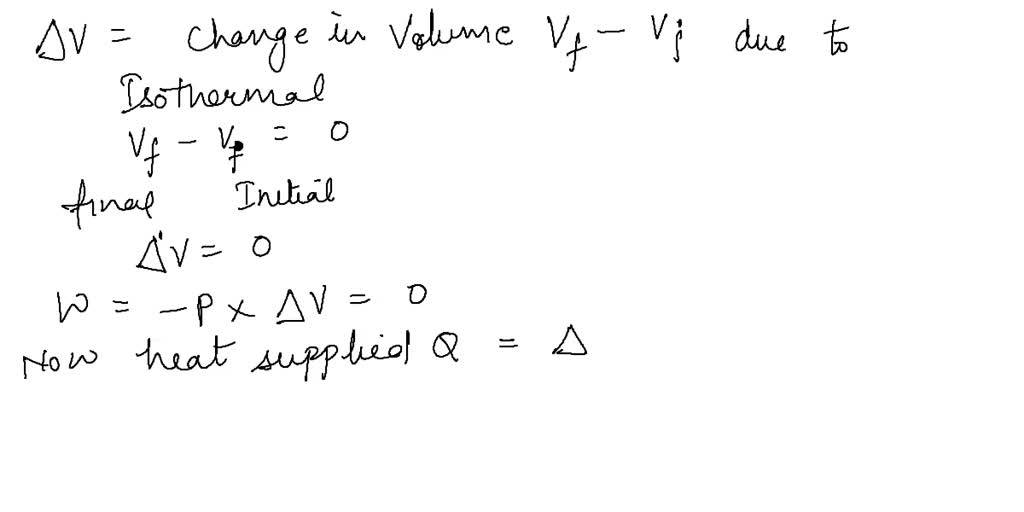 ΔV = change in Volume Vf - Vi due to
Isothermal
Vf - Vf = 0
final Initial
ΔV = 0
W = -P × ΔV = 0
Now heat supplied Q = Δ